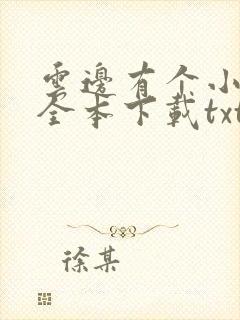 雲邊有个小
全本下載txt
徐某